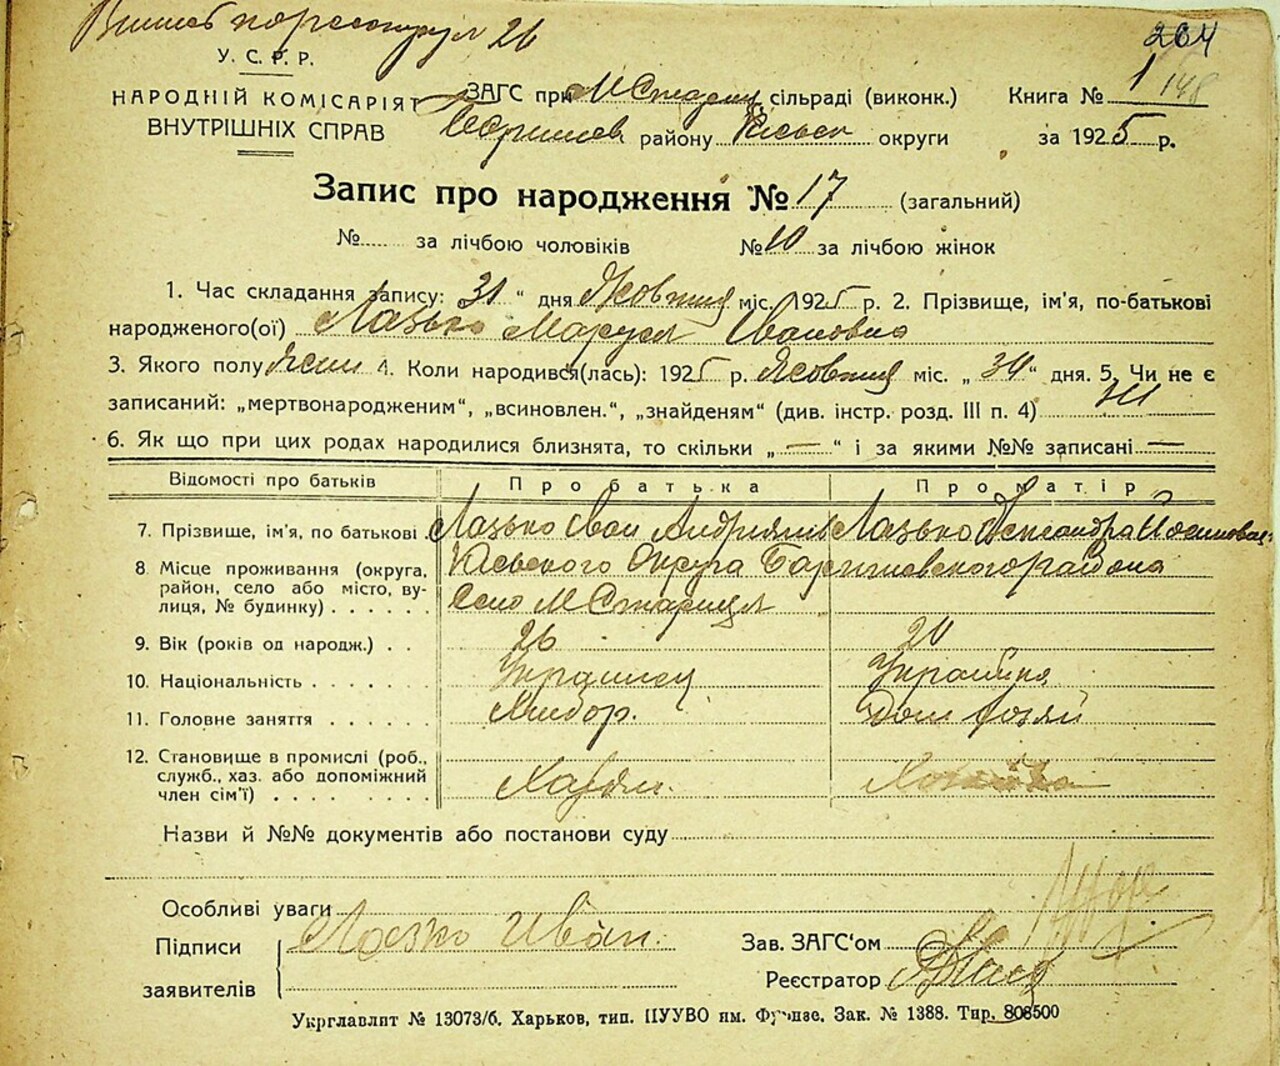 26 264
У. С. Р. Р. 1 148
НАРОДНІЙ КОМІСАРІЯТ ЗАГС при М Стариця сільраді (виконк.) Книга №
ВНУТРІШНІХ СПРАВ району Київськ округи за 1925 р.
Запис про народження № 17 (загальний)
№ за лічбою чоловіків № 10 за лічбою жінок
1. Час складання запису: „31“ дня Жовтня міс. 1925 р. 2. Прізвище, ім'я, по-батькові
народженого(ої) Лазько Маруся Івановна
3. Якого полу Жени 4. Коли народився(лась): 1925 р. Жовтня міс. „30“ дня. 5. Чи не є
записаний: „мертвонародженим“, „всиновлен.“, „знайденям“ (див. інстр. розд. III п. 4) Ні
6. Як що при цих родах народилися близнята, то скільки „—“ і за якими №№ записані —
Відомості про батьків Про батька Про матір
7. Прізвище, ім'я, по батькові Лазько Іван Лазько Александра
8. Місце проживання (округа, Київського Округа Баришевского района
район, село або місто, ву- Село М Стариця
лиця, № будинку) . . . . . .
9. Вік (років од народж.) . . 26 20
10. Національність . . . . . . Українец Українка
11. Головне заняття . . . . . . Хлібор. Дом хозяй
12. Становище в промислі (роб.,
служб., хаз. або допоміжний
член сім'ї) . . . . . . . . Хазяїн.
Назви й №№ документів або постанови суду
Особливі уваги
Підписи Лазко Иван. Зав. ЗАГС'ом
заявителів Реєстратор
Укрглавлит № 13073/б. Харьков, тип. ПУУВО им. Фрунзе. Зак. № 1388. Тир. 808500